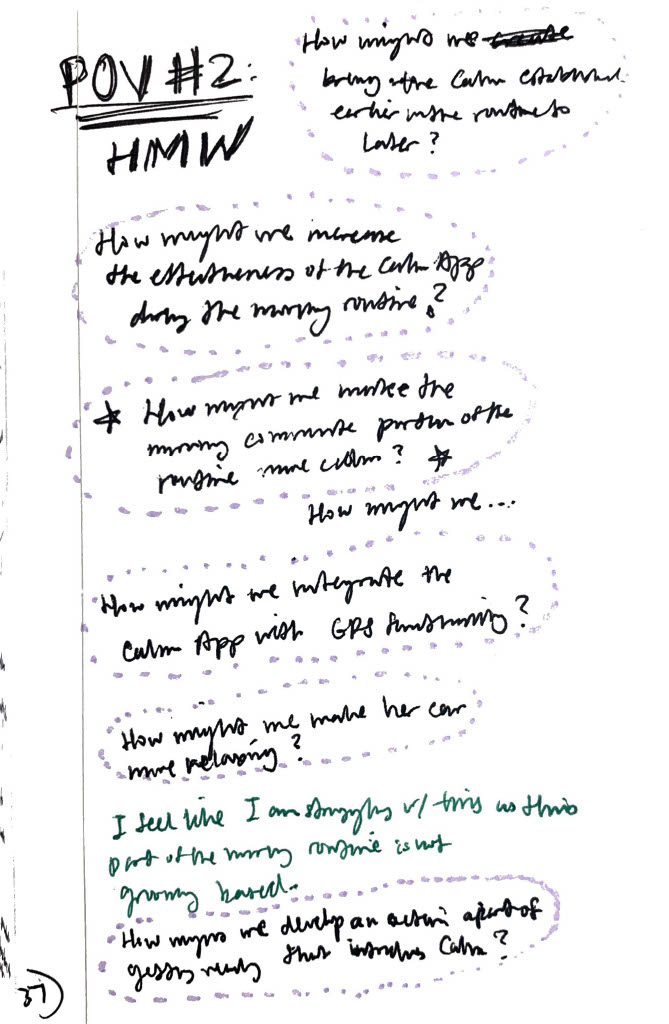 POV #2:
HMW
How might we
bring the calm established
earlier in the routine to
later?
How might we increase
the effectiveness of the Calm App
during the morning routine?
☆ How might we make the
morning commute portion of the
routine more calm? ☆
How might we...
How might we integrate the
Calm App with GPS functionality?
How might we make her car
more relaxing?
I feel like I am struggling w/ this as this
part of the morning routine is not
groomy based.
How might we develop an action apart of
getting ready that involves Calm?
37